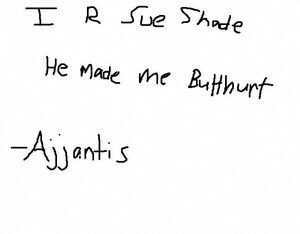 I R Sue Shade
He made me Butthurt
-Ajjantis